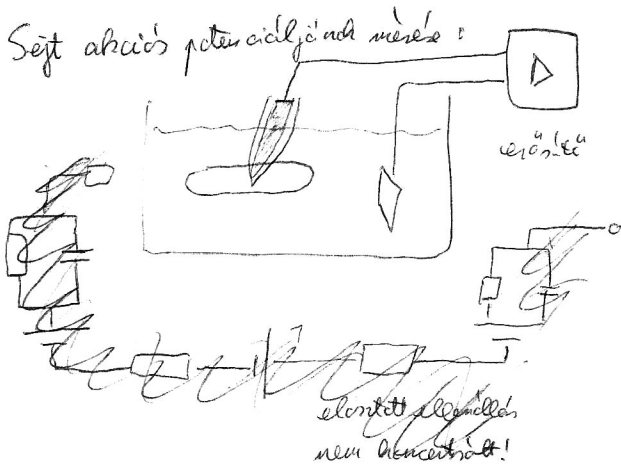 Sejt akciós potenciáljának mérése:
erősítő
elosztott ellenállás
nem koncentrált!